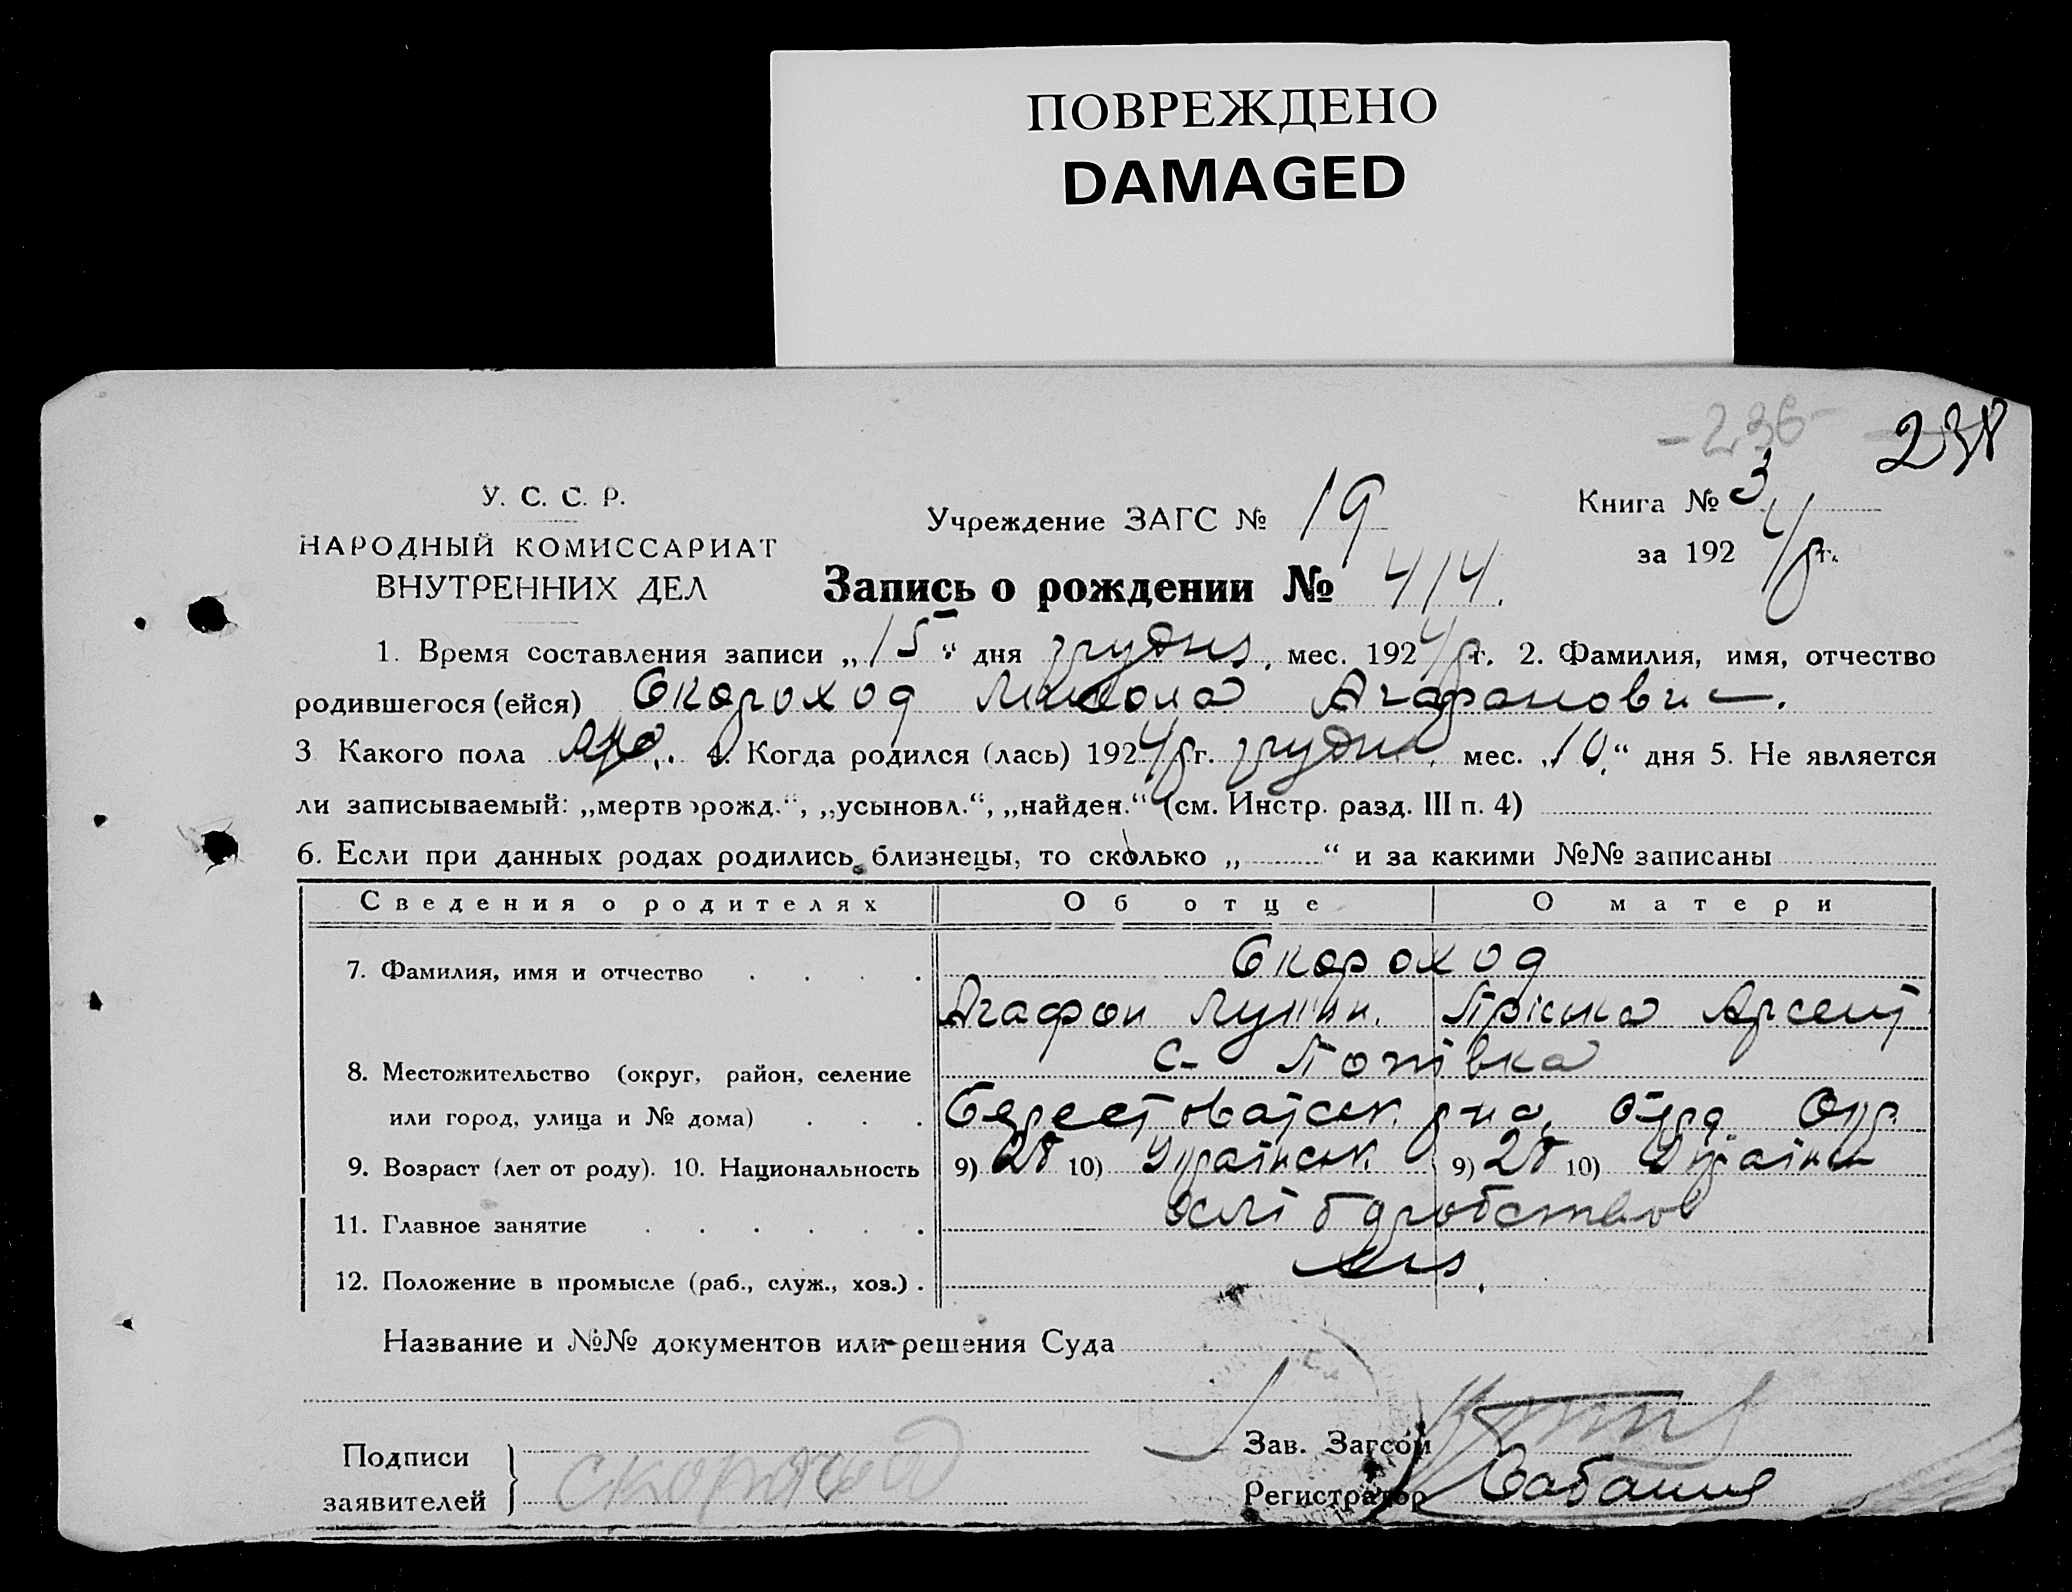 ПОВРЕЖДЕНО
DAMAGED
-236- 238
У. С. С. Р.
НАРОДНЫЙ КОМИССАРИАТ
ВНУТРЕННИХ ДЕЛ
Учреждение ЗАГС № 19
Книга № 3
за 192 г.
Запись о рождении № 414.
1. Время составления записи „15“ дня грудня, мес. 192 г. 2. Фамилия, имя, отчество
родившегося (ейся) Скороход Микола Агафонович.
3 Какого пола 4. Когда родился (лась) 192 г. грудня мес. „10.“ дня 5. Не является
ли записываемый: „мертворожд.“, „усыновл.“, „найден.“ (см. Инстр. разд. III п. 4)
6. Если при данных родах родились близнецы, то сколько „ “ и за какими №№ записаны
Сведения о родителях Об отце О матери
7. Фамилия, имя и отчество Скороход
Агафон Пріська Арсент
8. Местожительство (округ, район, селение с- Попівка
или город, улица и № дома)
9. Возраст (лет от роду). 10. Национальность 9) 28 10) Українськ. 9) 28 10) Українськ
11. Главное занятие хліборобство
12. Положение в промысле (раб., служ., хоз.).
Название и №№ документов или решения Суда
Подписи
заявителей } скороход
Зав. Загсом
Регистратор